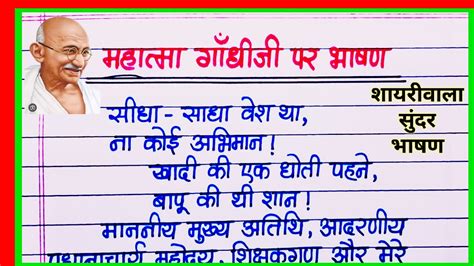 महात्मा गाँधीजी पर भाषण
शायरीवाला
सुंदर
भाषण
सीधा - साधा वेश था,
ना कोई अभिमान !
खादी की एक धोती पहने,
बापू की थी शान !
माननीय मुख्य अतिथि, आदरणीय
प्रधानाचार्य महोदय, शिक्षकगण और मेरे